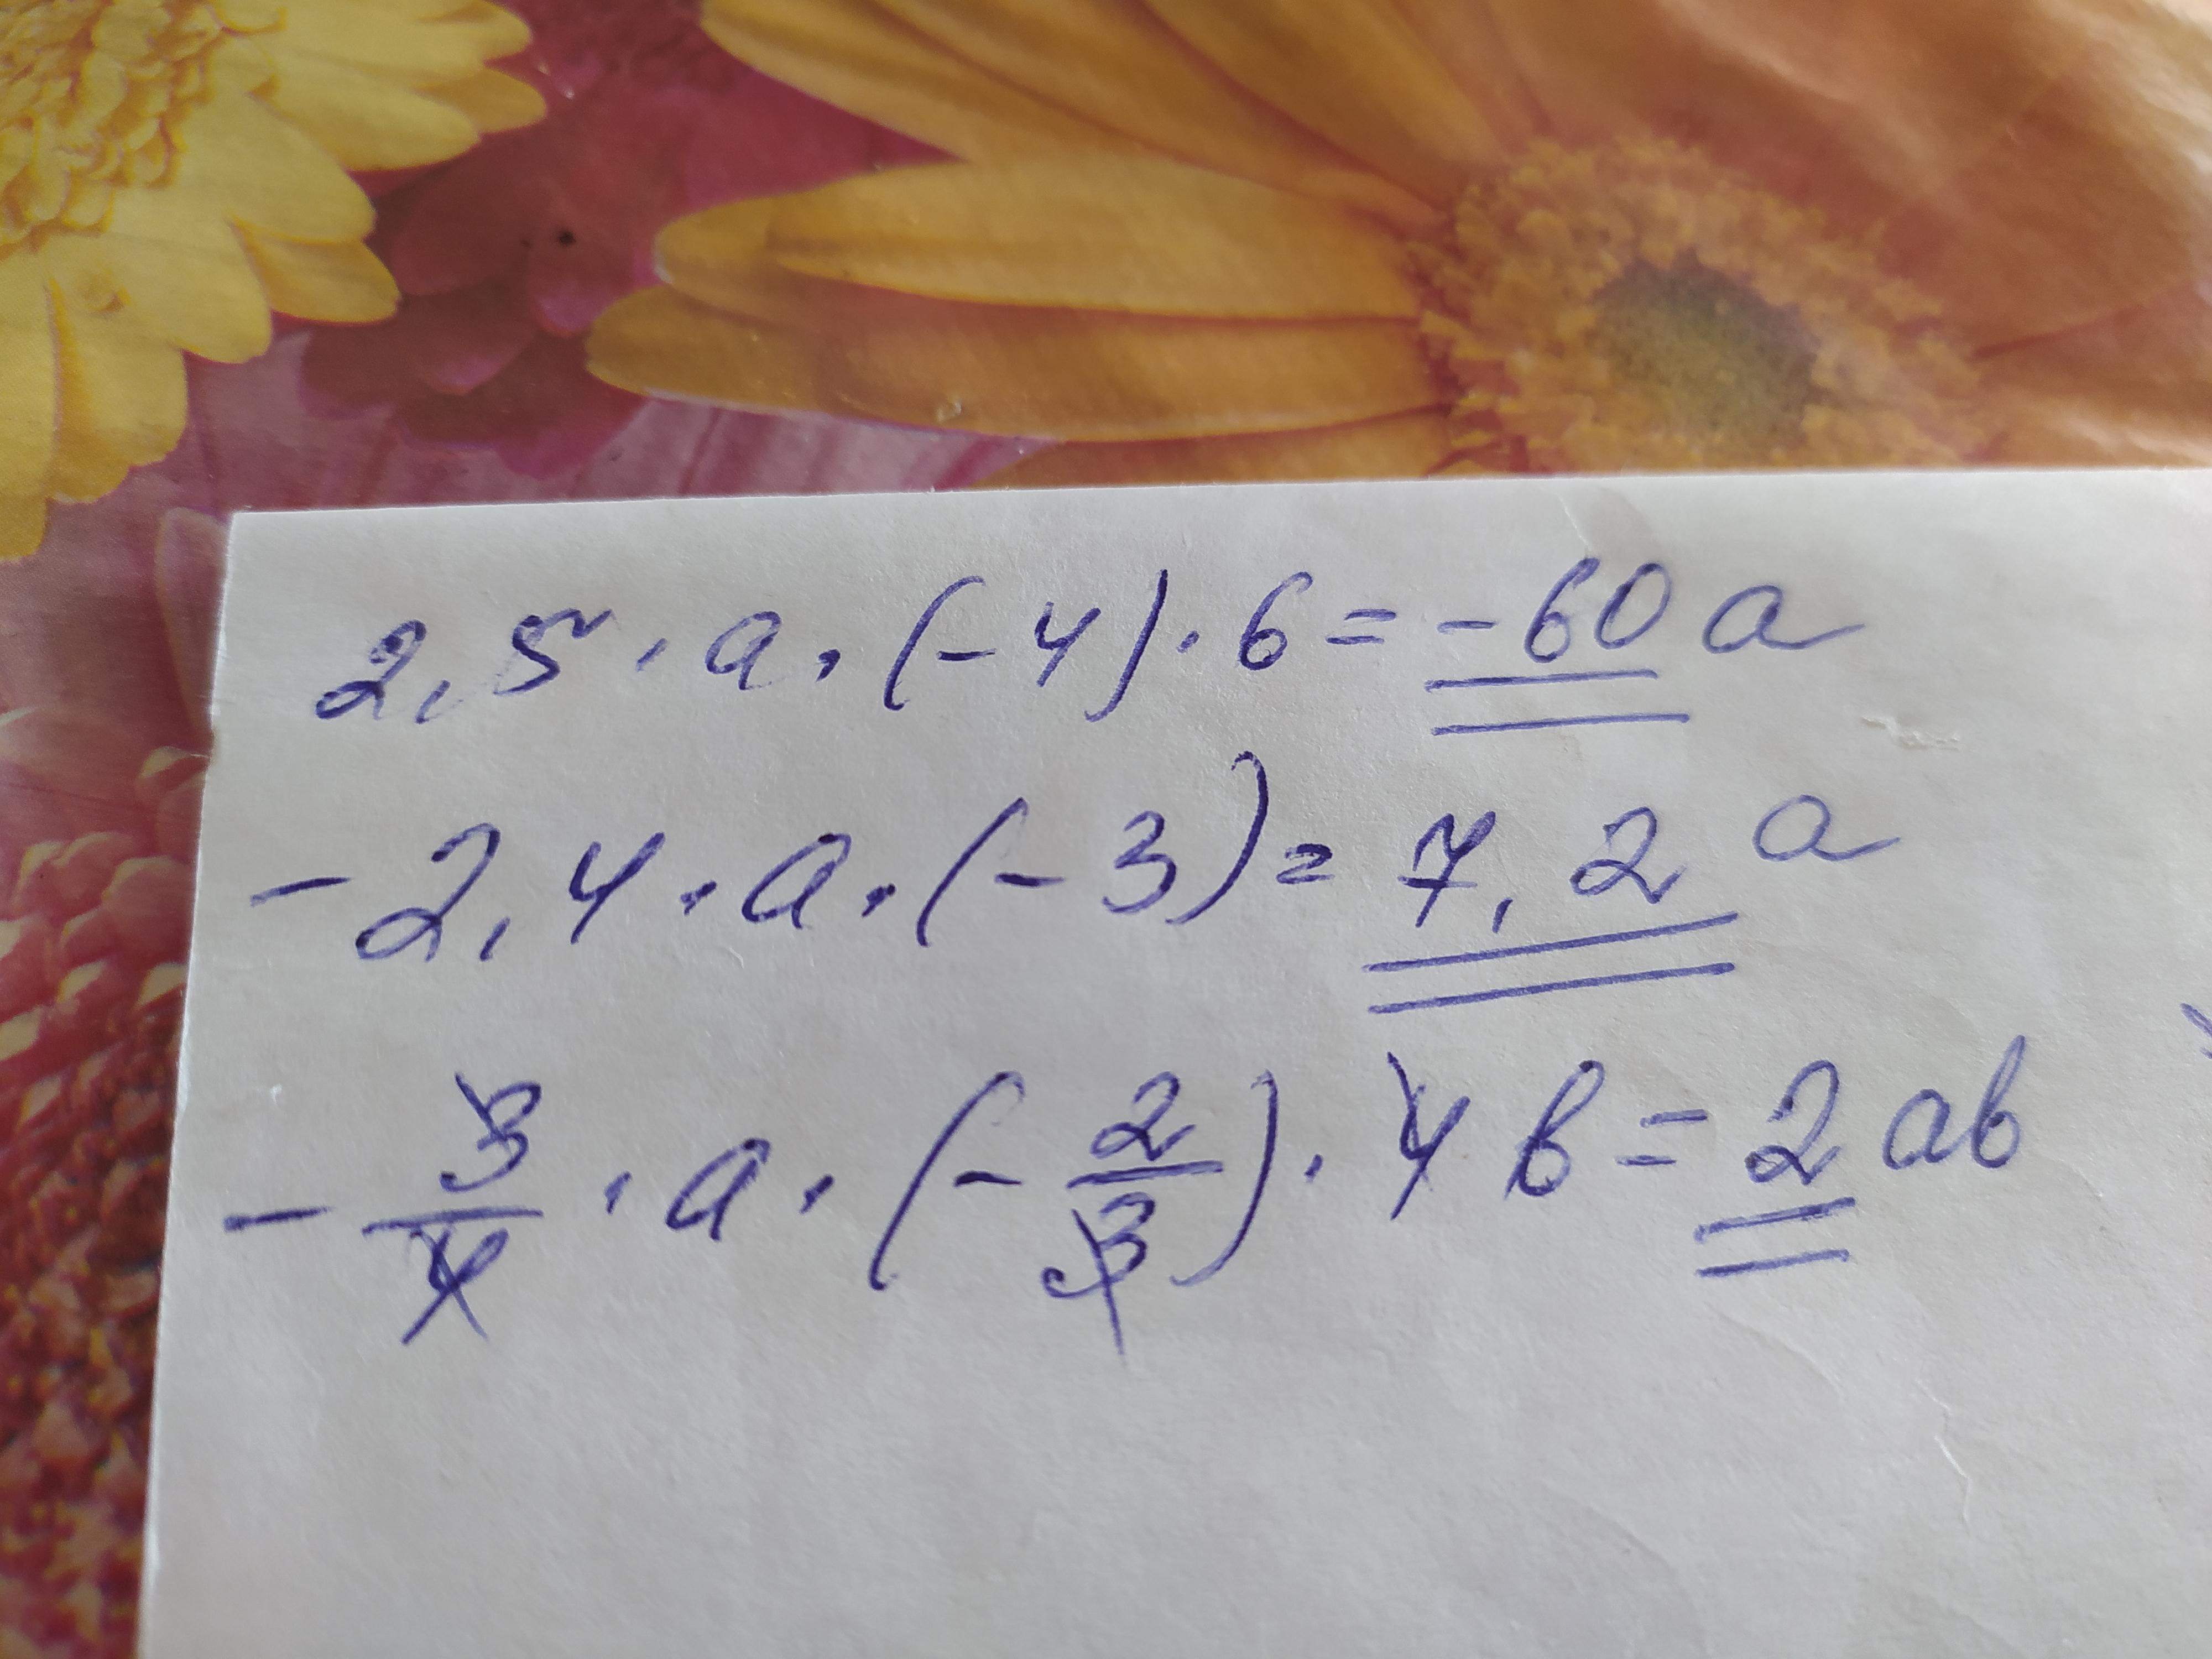 2,5 · a · (-4) · 6 = -60 a
-2,4 · a · (-3) = 7,2 a
-3/4 · a · (-2/3) · 4 b = 2 ab